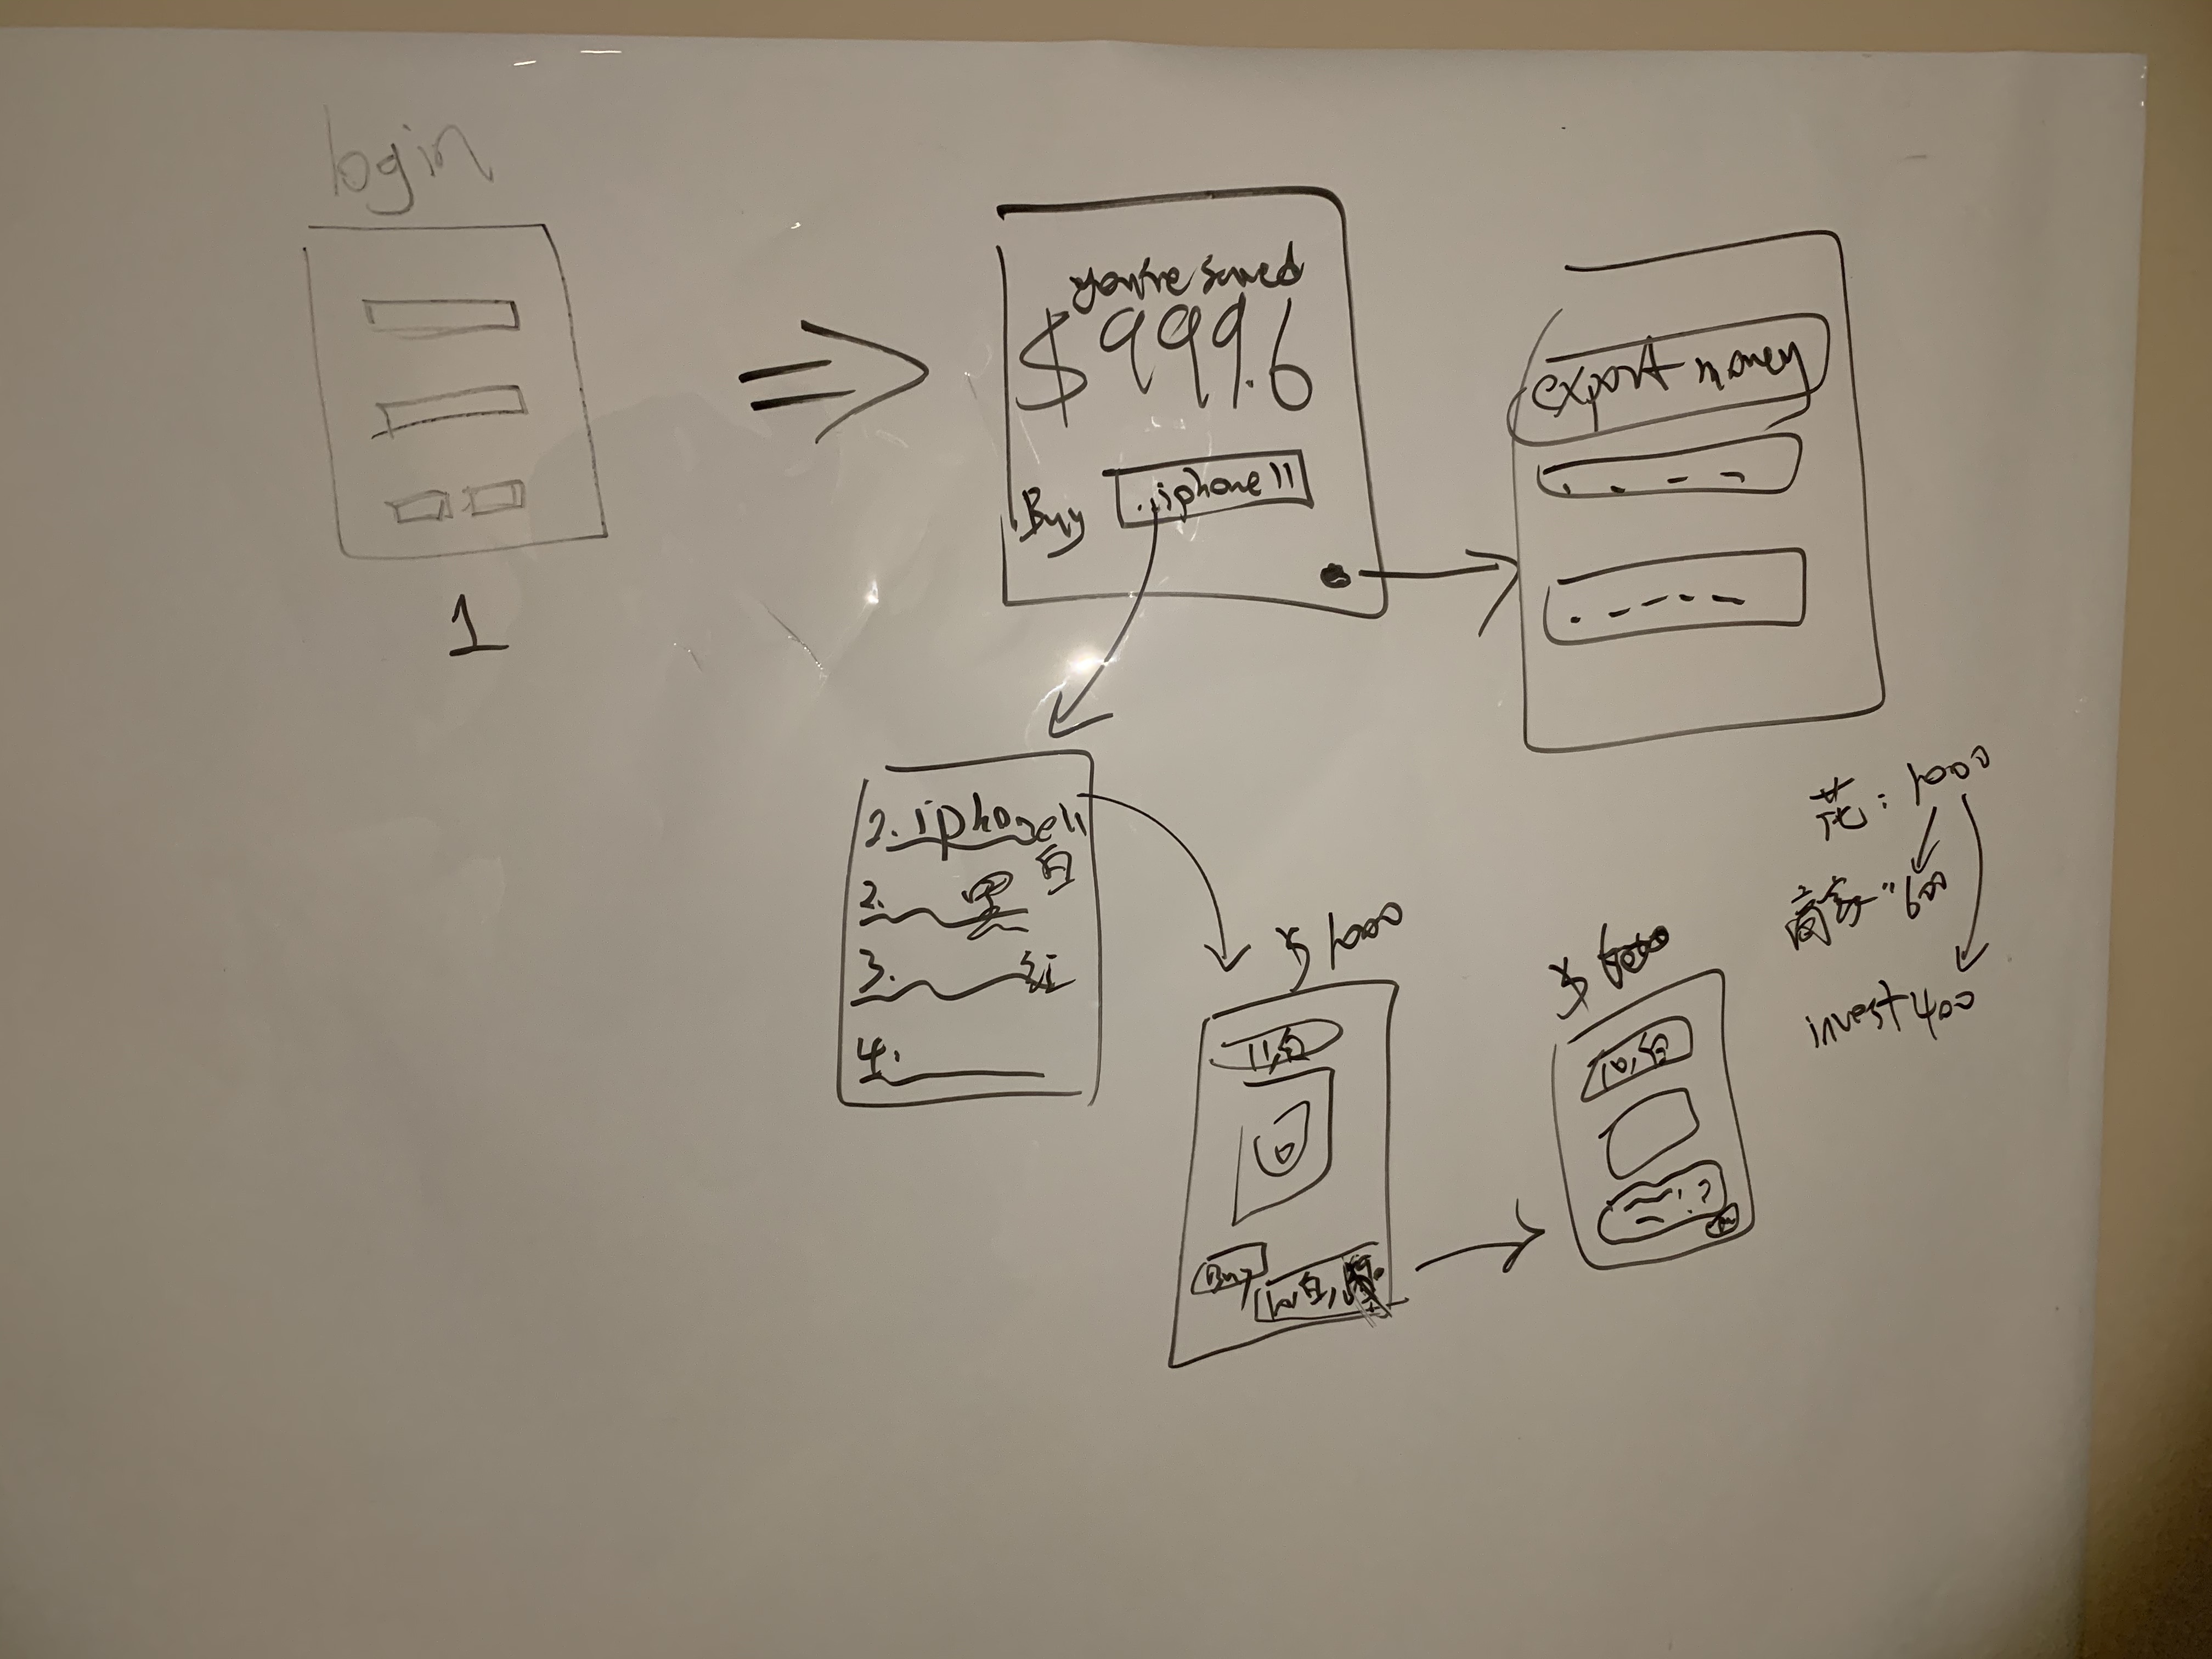 login
1
you've saved
$999.6
Buy iphone 11
export money
1. iphone 11
白
2. 黑
3. 红
4.
$ 1000
11,白
Buy
10白,
$
10,白
花: 1000
商家: 600
invest 400